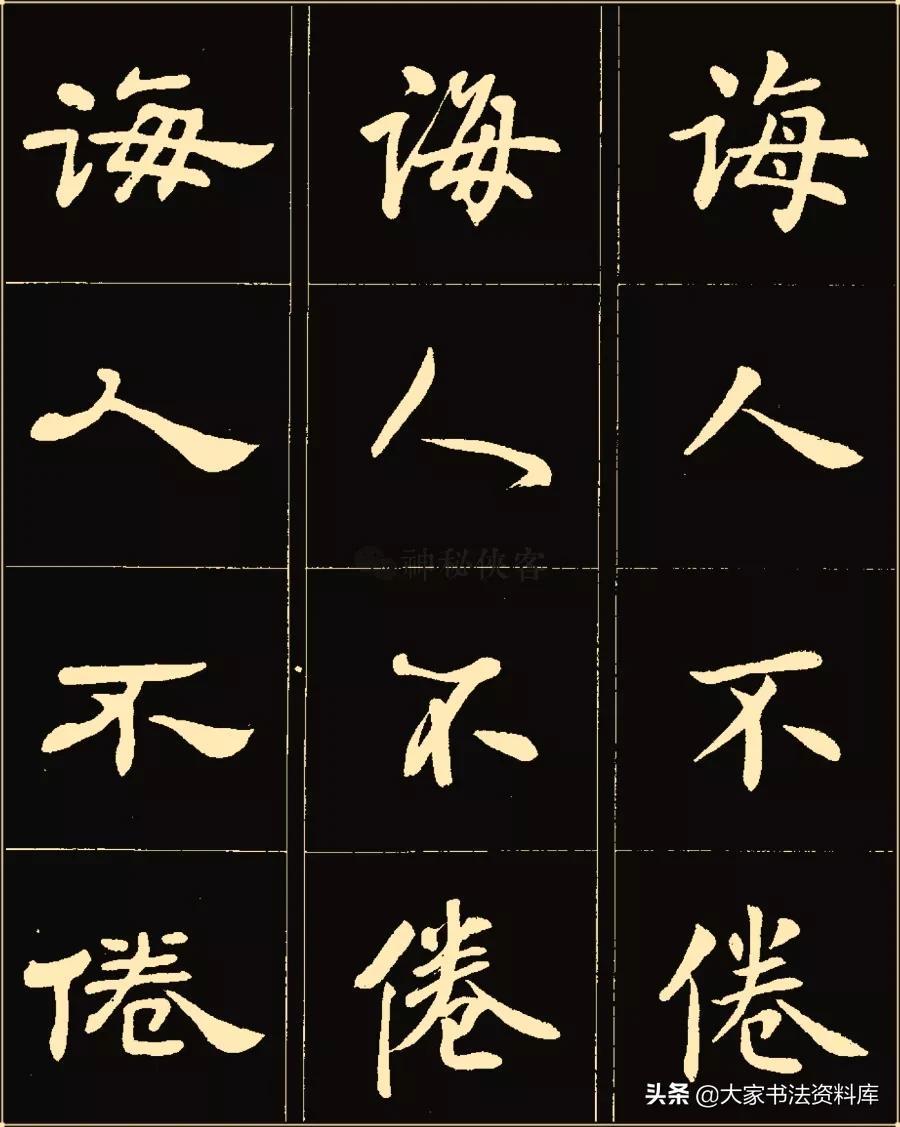 诲人不倦
诲人不倦
诲人不倦
神秘侠客
头条 @大家书法资料库